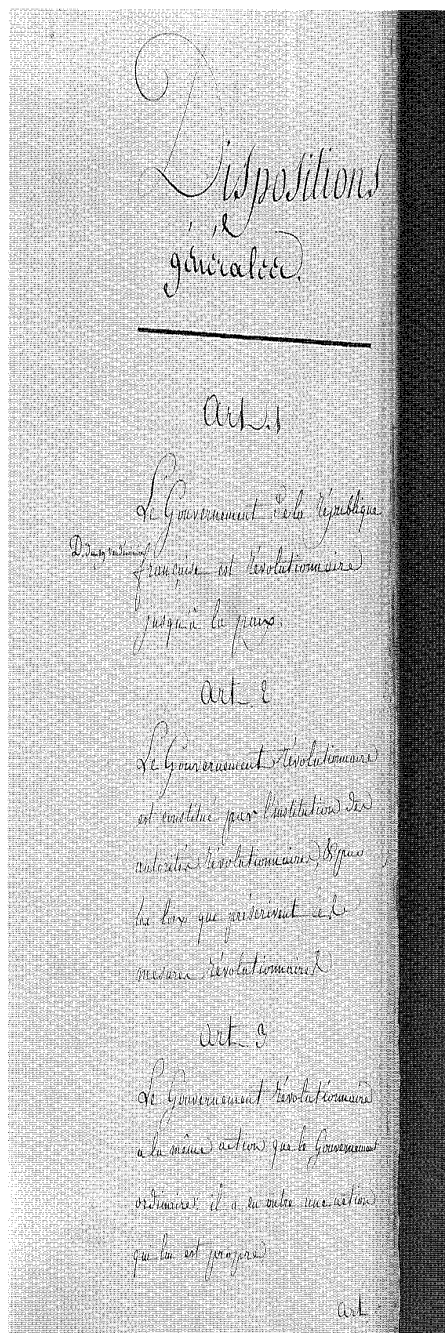 Dispositions
générales.
Art. 1
Le Gouvernement de la République
française est révolutionnaire
jusqu'à la paix.
Art. 2
Le Gouvernement révolutionnaire
est constitué par l'institution des
autorités révolutionnaires, & par
les loix que prescrivent les
mesures révolutionnaires
Art. 3
Le Gouvernement révolutionnaire
a la même action que le Gouvernement
ordinaire: il a en outre une action
qui lui est propre
Art